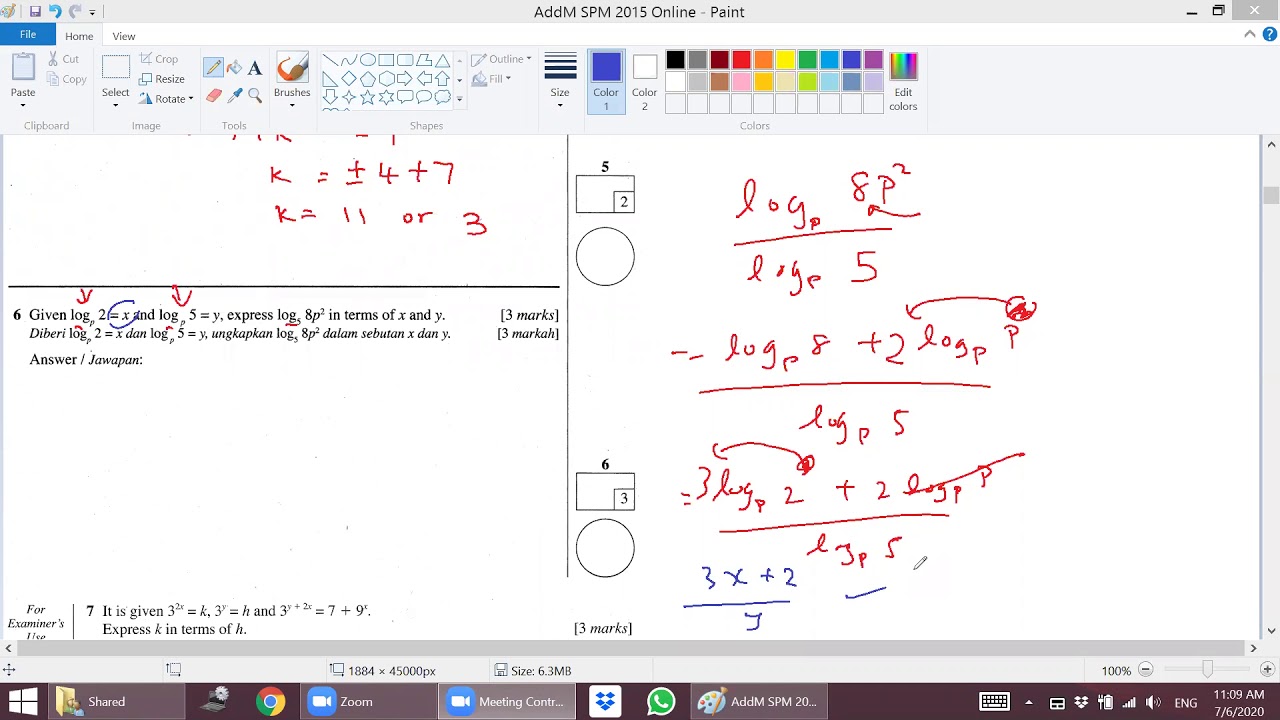 AddM SPM 2015 Online - Paint
File Home View
Paste
Cut
Copy
Clipboard
Select
Crop
Resize
Rotate
Image
Tools
Brushes
Shapes
Outline
Fill
Size
Color 1
Color 2
Edit colors
Colors
k = ± 4 + 7
k = 11 or 3
5
2
6 Given log_p 2 = x and log_p 5 = y, express log_5 8p² in terms of x and y. [3 marks]
Diberi log_p 2 = x dan log_p 5 = y, ungkapkan log_5 8p² dalam sebutan x dan y. [3 markah]
Answer / Jawapan:
6
3
For Examiner's Use
7 It is given 3^{2x} = k, 3^y = h and 3^{y + 2x} = 7 + 9^x.
Express k in terms of h.
[3 marks]
log_p 8p²
log_p 5
= log_p 8 + 2 log_p p
log_p 5
= 3 log_p 2 + 2 log_p p
log_p 5
3x + 2
y
1884 × 45000px
Size: 6.3MB
100%
Shared
Zoom
Meeting Contr...
AddM SPM 20...
ENG
11:09 AM
7/6/2020